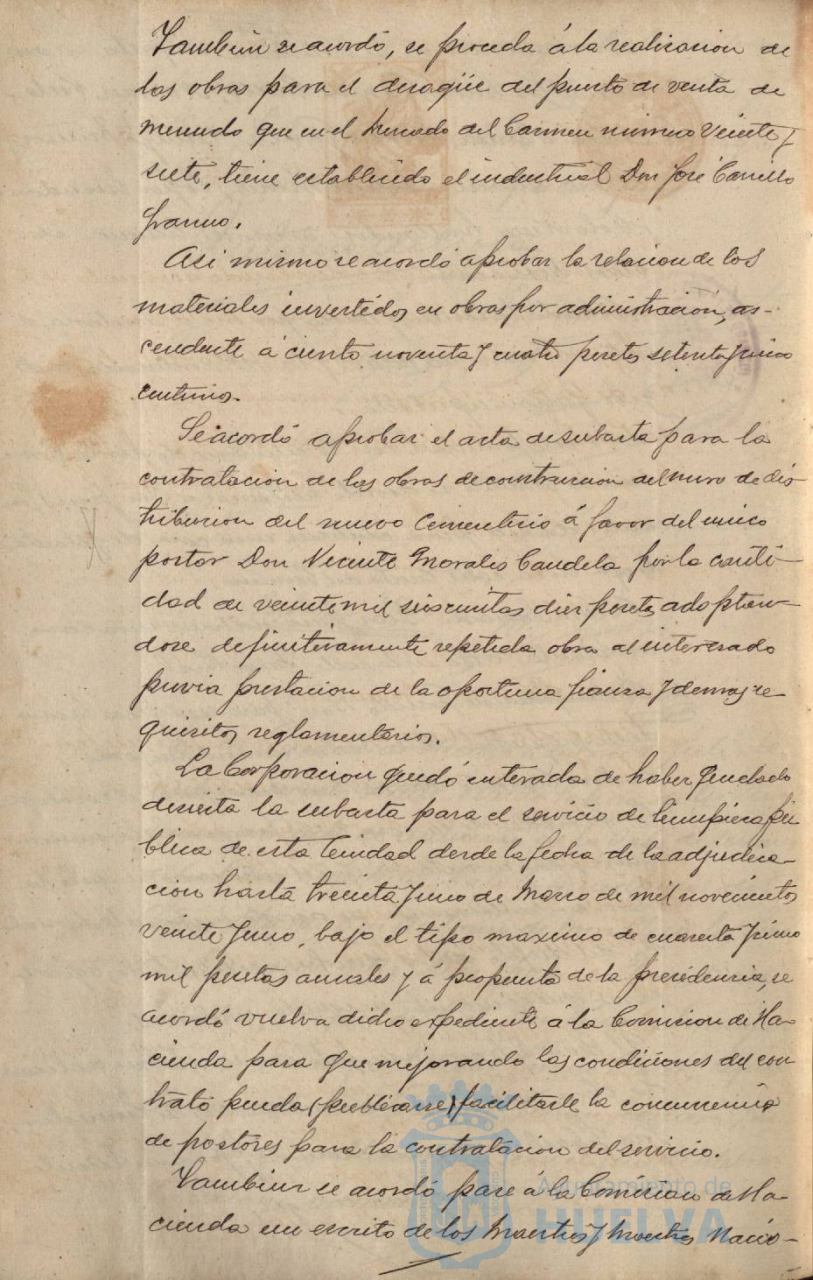 Tambien se acordó, se proceda á la realizacion de
las obras para el desagüe del puesto de venta de
menudo que en el Mercado del Carmen número veinte y
siete, tiene establecido el industrial Don José Carrillo

Asi mismo se acordó aprobar la relacion de los
materiales invertidos en obras por administracion, as-
cendente á ciento noventa y cuatro pesetas setenta y cinco
centimos.
Se acordó aprobar el acta de subasta para la
contratacion de las obras de construccion del muro de dis-
tribucion del nuevo Cementerio á favor del unico
postor Don Vicente Morales Candela por la canti-
dad de veinte mil seiscientas diez pesetas
definitivamente repetida obra al interesado
previa prestacion de la oportuna fianza y demas re-
quisitos reglamentarios.
La Corporacion quedó enterada de haber quedado
desierta la subasta para el servicio de limpieza pú
blica de esta Ciudad desde la fecha de la adjudica-
cion hasta treinta y uno de Marzo de mil novecientos
veinte y uno, bajo el tipo maximo de cuarenta y cinco
mil pesetas anuales y á propuesta de la presidencia, se
acordó vuelva dicho expediente á la Comision de Ha-
cienda para que mejorando las condiciones del con
trato pueda (publicarse) facilitarle la concurrencia
de postores para la contratacion del servicio.
Tambien se acordó pase á la Comision de Ha-
cienda un escrito de los Maestros y Maestras Nacio-
Ayuntamiento de
HUELVA